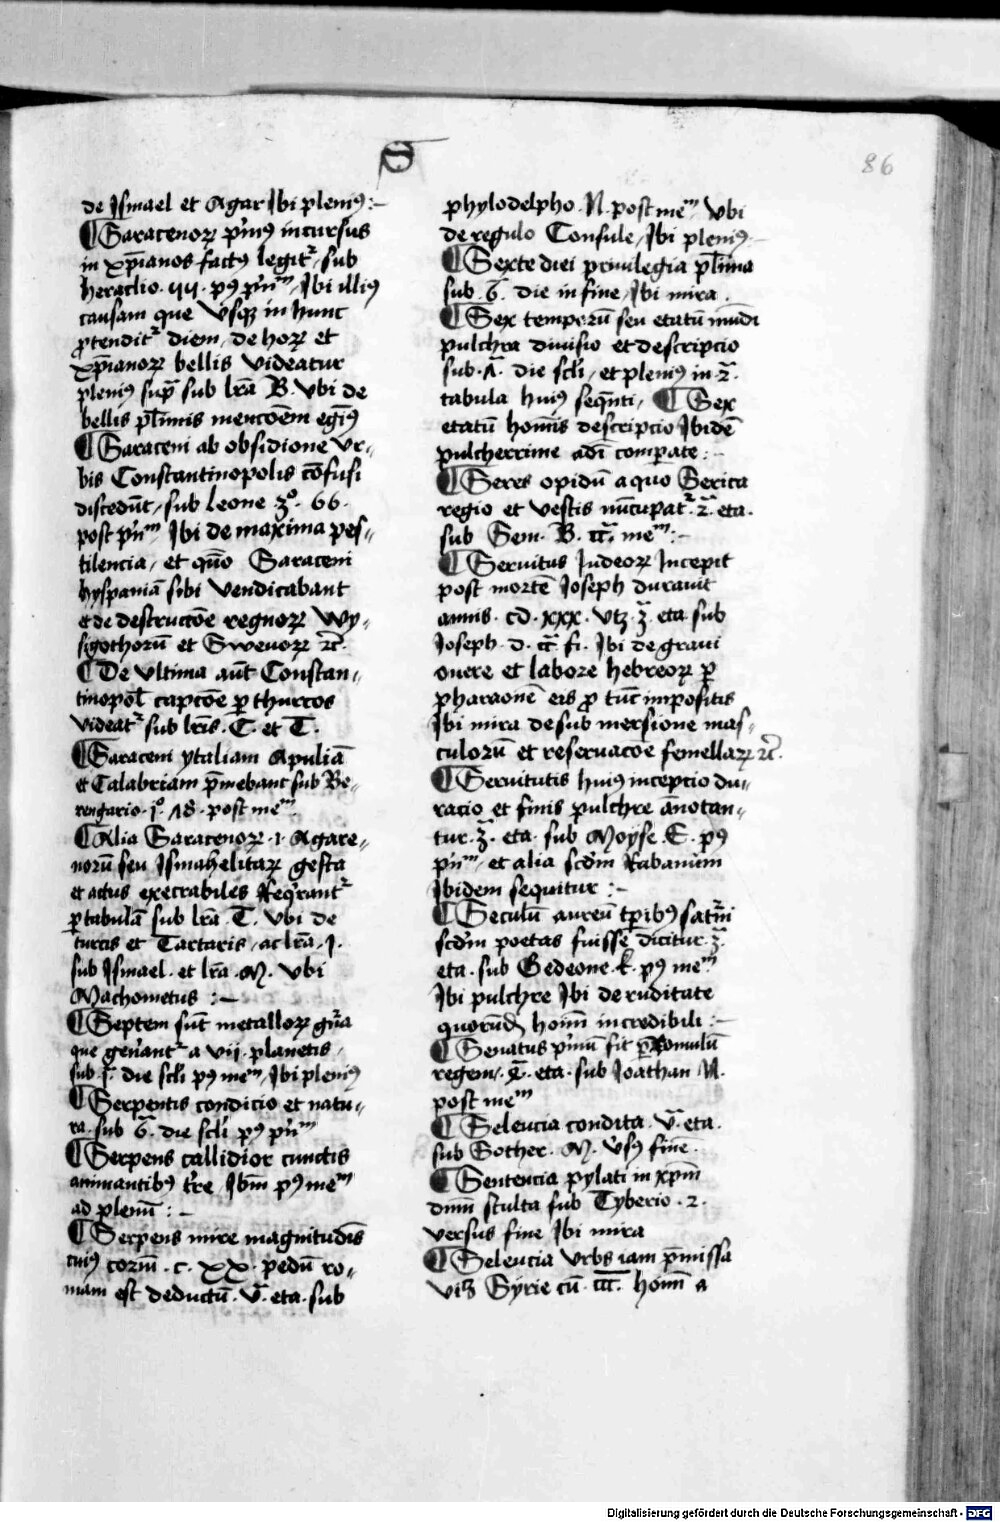 S
86
de Ismael et Agar Ibi pleniꝰ :~
¶ Saracenoꝝ p̄mꝰ incursus
in xp̄ianos factꝰ legit᷑ / sub
heraclio · ꝑꝰ pn̄ᵐ / Ibi illiꝰ
causam que vsqꝫ in hunc
ꝓtendit᷑ diem / de hoꝝ et
xp̄ianoꝝ bellis videatur
pleniꝰ sup̄ sub lr̄a B · vbi de
bellis pl̄imis mencōem egīꝰ
¶ Saraceni ab obsidione vr-
bis Constantinopolis cōfusi
discedūt / sub leone 3° · 66 ·
post pn̄ᵐ Ibi de maxima pes-
tilencia / et quō Saraceni
hyspaniā sibi vendicabant
et de destructōe regnoꝝ Wy-
sigothorū et Swevoꝝ ꝛc̄ ·
¶ De vltima aūt Constan-
tinopol̄ captōe ꝑ thurcos
videat᷑ sub lr̄is · C · et T ·
¶ Saraceni ytaliam Apuliā
et Calabriam p̄mebant sub Be-
rengario · j° · 18 · post meᵐ
¶ Alia Saracenoꝝ · i · Agare-
norū seu Ismahelitaꝝ gesta
et actus execrabiles Req̇rant᷑
ꝑ tabulā sub lr̄a T · vbi de
turcis et Tartaris / ac lr̄a · I ·
sub Ismael · et lr̄a · M · vbi
Machometus :~
¶ Septem sūt metalloꝝ gn̄a
que gen̄ant᷑ a vij · planetis /
sub · die scl̄i pꝰ meᵐ / Ibi pleniꝰ
¶ Serpentis condicio et natu-
ra · sub 6̄ · die scl̄i pꝰ pn̄ᵐ
¶ Serpens callidior cunctis
animantibꝰ t̄re / Ibm̄ pꝰ meᵐ
ad plenū :~
¶ Serpens mire magnitudīs
cuiꝰ coriū · c · xx · pedū ro-
mam est deductū · v̄ · eta · sub
phylodelpho · N · post meᵐ vbi
de regulo Consule / Ibi pleniꝰ
¶ Sexte diei priuilegia pl̄ima
sub · 6̄ · die in fine / Ibi mira ·
¶ Sex temporū seu etatū mūdi
pulchra diuisio et descripcio
sub · 1̄ · die scl̄i / et pleniꝰ in · 2̄ ·
tabula huiꝰ seqn̄ti / ¶ Sex
etatū homīs descripcio Ibidē
pulcherrime adī comparate :~
¶ Seres opidū a quo Serica
regio et vestis nūcupat᷑ · 2̄ · eta ·
sub Sem · B · cc̄ · meᵐ :~
¶ Seruitus Iudeoꝝ Incepit
post mortē Ioseph durauit
annis · cd · xxx · vtꝫ · 3̄ · eta · sub
Ioseph · D · cc̄ · fi · Ibi de graui
onere et labore hebreoꝝ ꝑ
pharaonē eis ꝓ tūc impositis
Ibi mira de sub mersione mas-
culorū et reseruacōe femellaꝝ ꝛc̄ ·
¶ Seruitutis huiꝰ incepcio du-
racio et finis pulchre ānotan-
tur · 3̄ · eta · sub Moyse · E · pꝰ
pn̄ᵐ / et alia scdm̄ Rabanum
Ibidem sequitur :~
¶ Seculū aureū tp̄ibꝰ saturni
scdm̄ poetas fuisse dicitur · 3̄ ·
eta · sub Gedeone · k · pꝰ meᵐ
Ibi pulchre Ibi de ruditate
quorūdā hom̄ incredibili :~
¶ Senatus p̄mū fit ꝑ Romulū
regem / · eta · sub Ioathan N ·
post meᵐ
¶ Seleucia condita · v̄ · eta ·
sub Sother · M · v̄sꝰ fine ·
¶ Sentencia pylati in xp̄m
dnm̄ stulta sub Tyberio · 2 ·
versus fine Ibi mira
¶ Seleucia vrbs iam p̄missa
vtꝫ Syrie cū · ccc̄ · hom̄ a
Digitalisierung gefördert durch die Deutsche Forschungsgemeinschaft - DFG